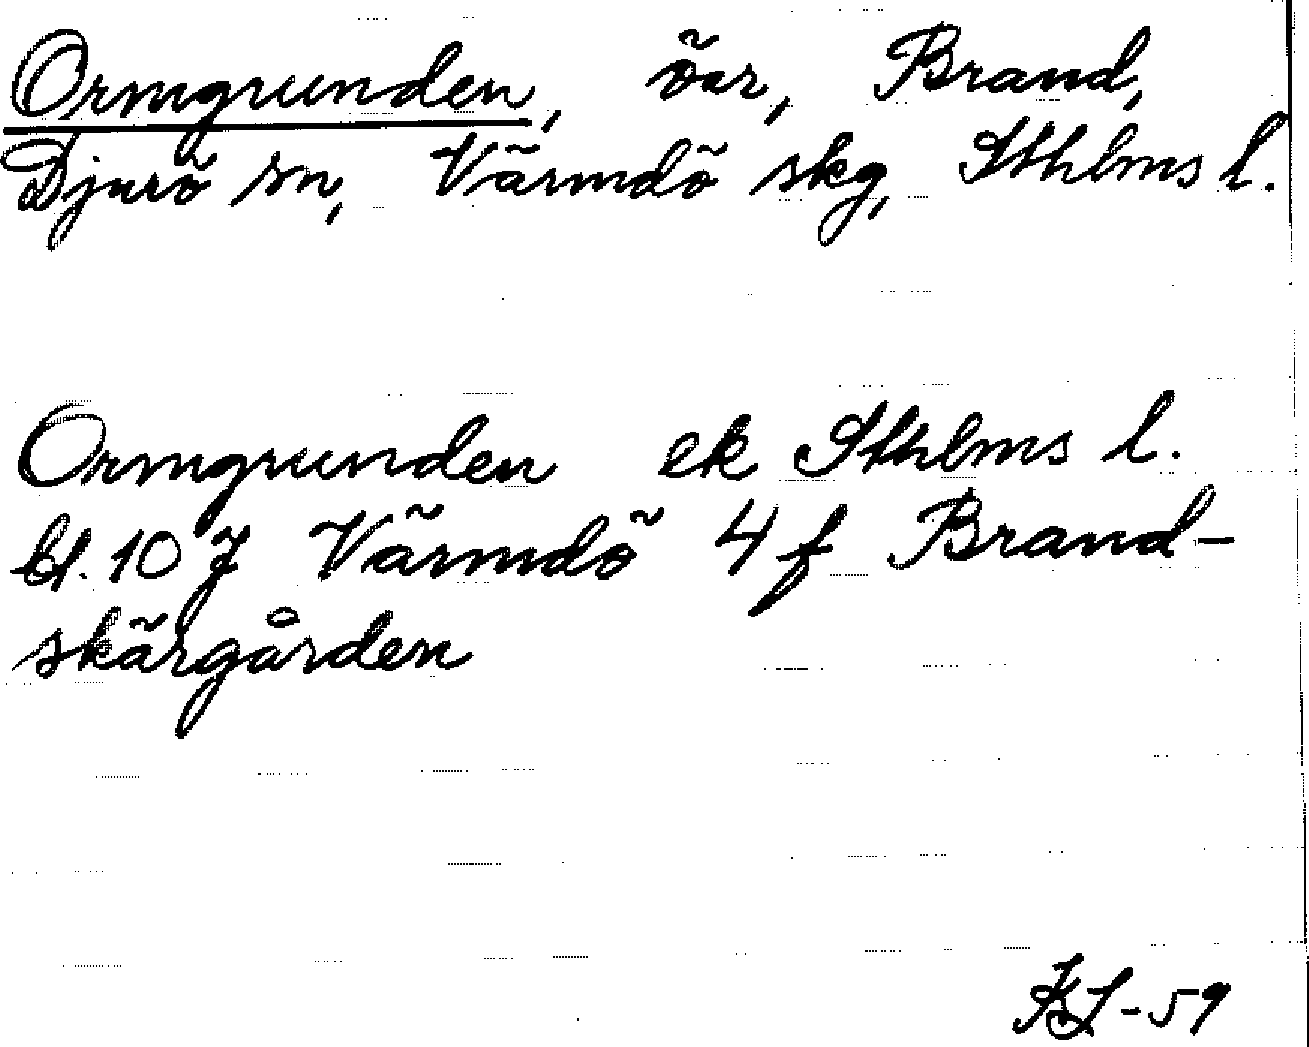 Ormgrunden, öar, Brand,
Djurö sn, Värmdö skg, Sthlms l.
Ormgrunden ek Sthlms l.
bl. 107 Värmdö 4 f Brand-
skärgården
KL-59